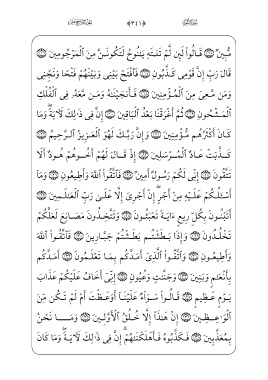 مُّبِينٌ ۝ قَالُوا۟ لَئِن لَّمْ تَنتَهِ يَـٰنُوحُ لَتَكُونَنَّ مِنَ ٱلْمَرْجُومِينَ ۝
قَالَ رَبِّ إِنَّ قَوْمِى كَذَّبُونِ ۝ فَٱفْتَحْ بَيْنِى وَبَيْنَهُمْ فَتْحًا وَنَجِّنِى
وَمَن مَّعِىَ مِنَ ٱلْمُؤْمِنِينَ ۝ فَأَنجَيْنَـٰهُ وَمَن مَّعَهُۥ فِى ٱلْفُلْكِ
ٱلْمَشْحُونِ ۝ ثُمَّ أَغْرَقْنَا بَعْدُ ٱلْبَاقِينَ ۝ إِنَّ فِى ذَٰلِكَ لَـَٔايَةً ۖ وَمَا
كَانَ أَكْثَرُهُم مُّؤْمِنِينَ ۝ وَإِنَّ رَبَّكَ لَهُوَ ٱلْعَزِيزُ ٱلرَّحِيمُ ۝
كَذَّبَتْ عَادٌ ٱلْمُرْسَلِينَ ۝ إِذْ قَالَ لَهُمْ أَخُوهُمْ هُودٌ أَلَا
تَتَّقُونَ ۝ إِنِّى لَكُمْ رَسُولٌ أَمِينٌ ۝ فَٱتَّقُوا۟ ٱللَّهَ وَأَطِيعُونِ ۝ وَمَآ
أَسْـَٔلُكُمْ عَلَيْهِ مِنْ أَجْرٍ ۖ إِنْ أَجْرِىَ إِلَّا عَلَىٰ رَبِّ ٱلْعَـٰلَمِينَ ۝
أَتَبْنُونَ بِكُلِّ رِيعٍ ءَايَةً تَعْبَثُونَ ۝ وَتَتَّخِذُونَ مَصَانِعَ لَعَلَّكُمْ
تَخْلُدُونَ ۝ وَإِذَا بَطَشْتُم بَطَشْتُمْ جَبَّارِينَ ۝ فَٱتَّقُوا۟ ٱللَّهَ
وَأَطِيعُونِ ۝ وَٱتَّقُوا۟ ٱلَّذِىٓ أَمَدَّكُم بِمَا تَعْلَمُونَ ۝ أَمَدَّكُم
بِأَنْعَـٰمٍ وَبَنِينَ ۝ وَجَنَّـٰتٍ وَعُيُونٍ ۝ إِنِّىٓ أَخَافُ عَلَيْكُمْ عَذَابَ
يَوْمٍ عَظِيمٍ ۝ قَالُوا۟ سَوَآءٌ عَلَيْنَآ أَوَعَظْتَ أَمْ لَمْ تَكُن مِّنَ
ٱلْوَٰعِظِينَ ۝ إِنْ هَـٰذَآ إِلَّا خُلُقُ ٱلْأَوَّلِينَ ۝ وَمَا نَحْنُ
بِمُعَذَّبِينَ ۝ فَكَذَّبُوهُ فَأَهْلَكْنَـٰهُمْ ۗ إِنَّ فِى ذَٰلِكَ لَـَٔايَةً ۖ وَمَا كَانَ